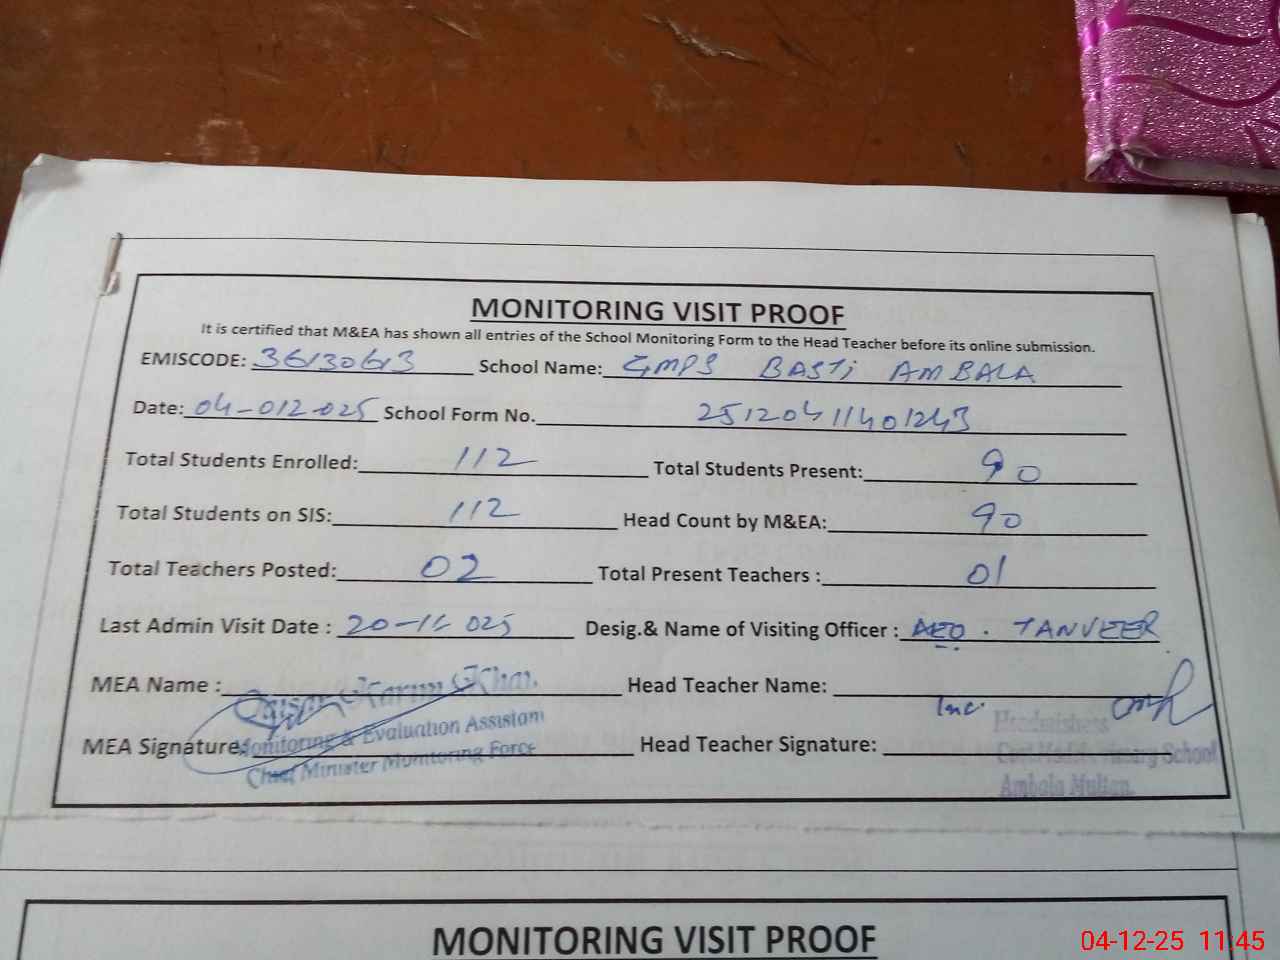 MONITORING VISIT PROOF
It is certified that M&EA has shown all entries of the School Monitoring Form to the Head Teacher before its online submission.
EMISCODE: 36130613 School Name: GMPS BASTi AMBALA
Date: 04-012-025 School Form No. 25120411401243
Total Students Enrolled: 112 Total Students Present: 90
Total Students on SIS: 112 Head Count by M&EA: 90
Total Teachers Posted: 02 Total Present Teachers : 01
Last Admin Visit Date : 20-11 025 Desig.& Name of Visiting Officer : AEO . TANVEER
MEA Name : Qaisar Karim Khan Head Teacher Name:
Inc.
MEA Signature: Monitoring & Evaluation Assistant Head Teacher Signature: Headmistress
Chief Minister Monitoring Force Primary School
Ambala Multan.
MONITORING VISIT PROOF
04-12-25 11:45